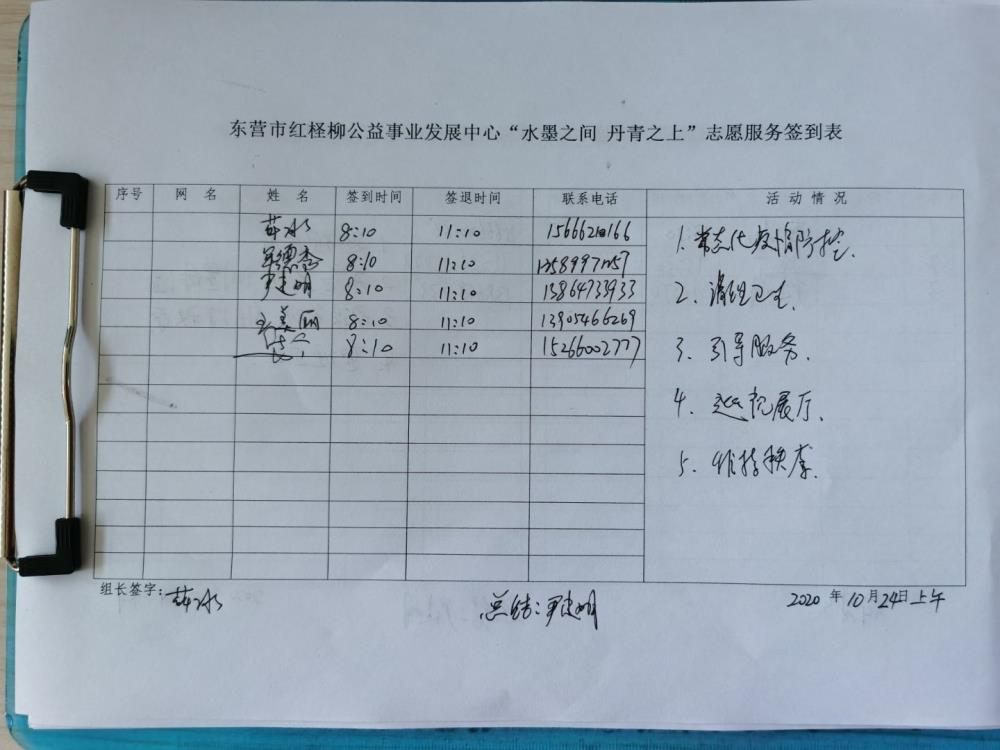 东营市红柽柳公益事业发展中心“水墨之间 丹青之上”志愿服务签到表
序号 网 名 姓 名 签到时间 签退时间 联系电话 活 动 情 况
茹冰 8:10 11:10
8:10 11:10
尹建明 8:10 11:10 13864733933
美丽 8:10 11:10 13905466269
8:10 11:10 15266002777
1. 常态化疫情防控.
2. 清理卫生.
3. 引导服务.
4. 巡视展厅.
5. 维持秩序.
组长签字: 茹冰 总结: 尹建明 2020 年 10 月 24 日上午